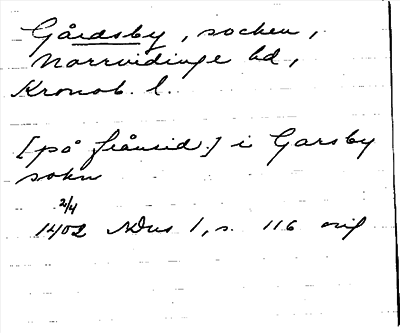 Gårdsby, socken,
Norrvidinge hd,
Kronob. l.
[på frånsid.] i Garsby
sokn
2/4
1402 NDns 1, s. 116 orig